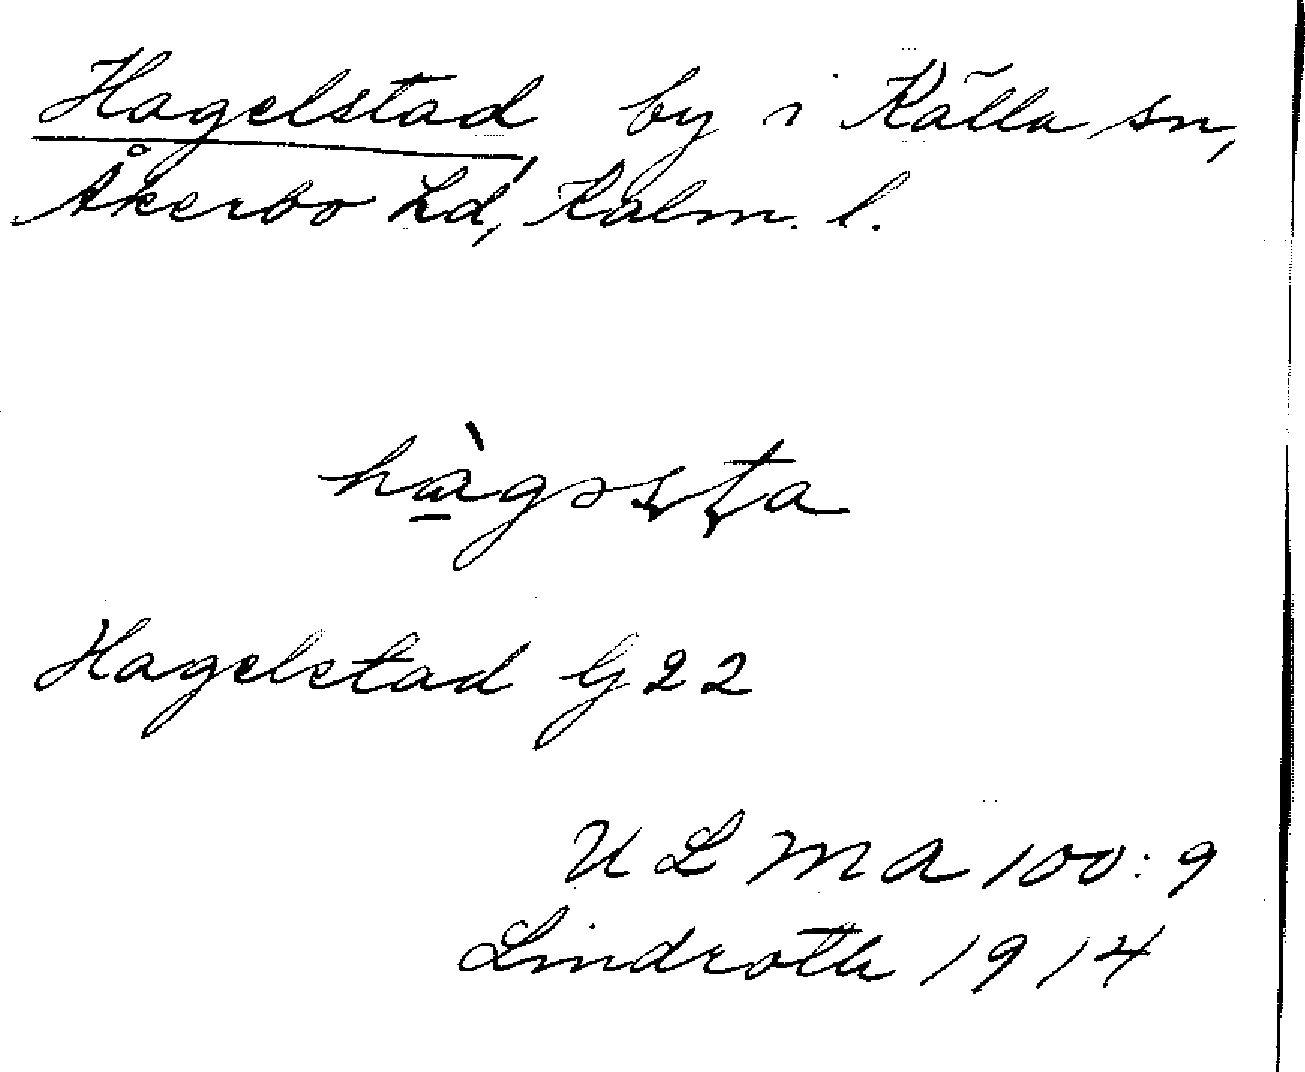 Hagelstad by i Källa sn,
Åkerbo hd, Kalm. l.
hàgəsta
Hagelstad G 22
ULMA 100:9
Lindroth 1914